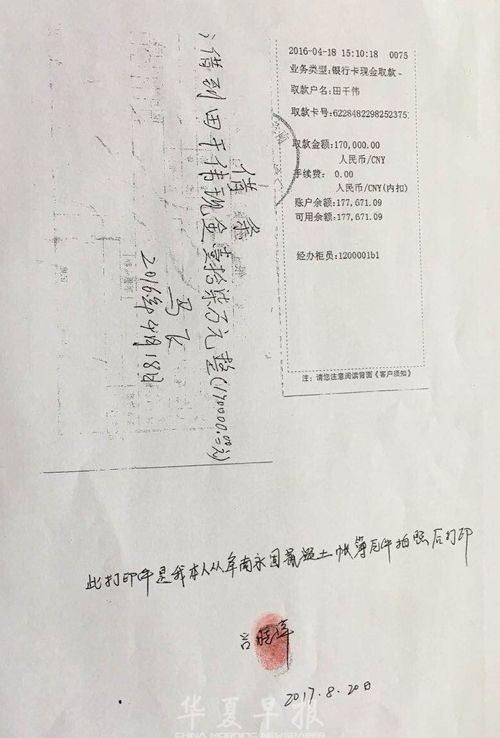 借条
借到田干伟现金壹拾柒万元整(170000.00元)
马飞
2016年4月18日
2016-04-18 15:10:18 0075
业务类型:银行卡现金取款
取款户名:田干伟
取款卡号:6228482298252375
取款金额:170,000.00
人民币/CNY
手续费: 0.00
人民币/CNY(内扣)
账户余额:177,671.09
可用余额:177,671.09
经办柜员:1200001b1
注:请您注意阅读背面《客户须知》
此打印件是我本人从牟南永固混凝土帐簿原件拍照后打印
2017.8.20日
华夏早报
CHINA MORNING NEWSPAPER